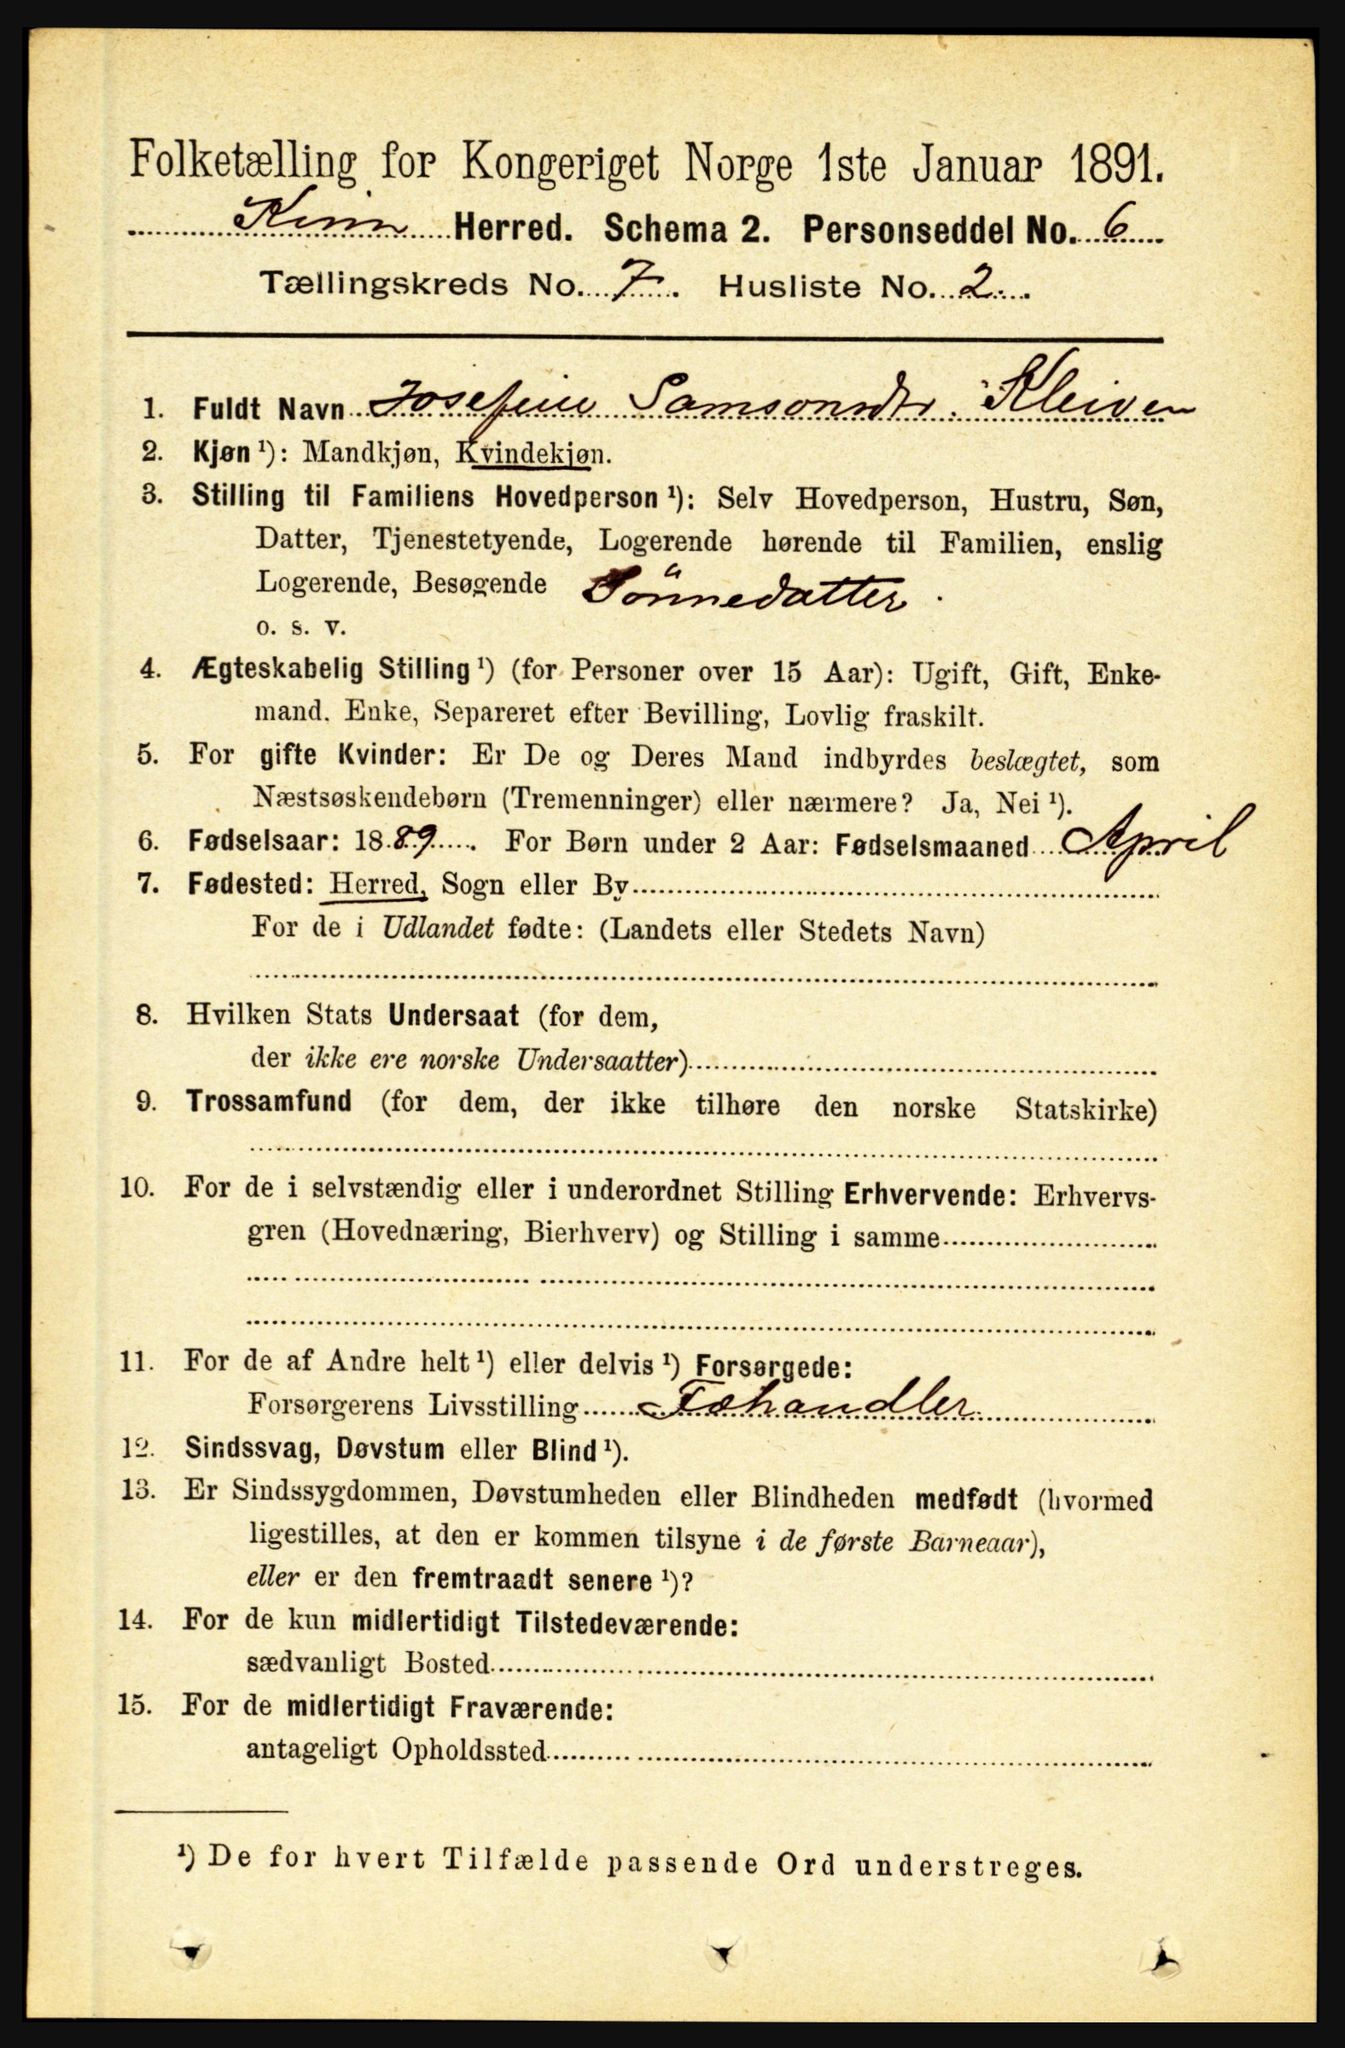 Folketælling for Kongeriget Norge 1ste Januar 1891.
Kinn Herred. Schema 2. Personseddel No. 6
Tællingskreds No. 7. Husliste No. 2.
1. Fuldt Navn Josefine Samsonsdtr. Kleiven
2. Kjøn ¹): Mandkjøn, Kvindekjøn.
3. Stilling til Familiens Hovedperson ¹): Selv Hovedperson, Hustru, Søn,
Datter, Tjenestetyende, Logerende hørende til Familien, enslig
Logerende, Besøgende Sönnedatter.
o. s. v.
4. Ægteskabelig Stilling ¹) (for Personer over 15 Aar): Ugift, Gift, Enke-
mand. Enke, Separeret efter Bevilling, Lovlig fraskilt.
5. For gifte Kvinder: Er De og Deres Mand indbyrdes beslægtet, som
Næstsøskendebørn (Tremenninger) eller nærmere? Ja, Nei ¹).
6. Fødselsaar: 1889. For Børn under 2 Aar: Fødselsmaaned April
7. Fødested: Herred, Sogn eller By
For de i Udlandet fødte: (Landets eller Stedets Navn)
8. Hvilken Stats Undersaat (for dem,
der ikke ere norske Undersaatter)
9. Trossamfund (for dem, der ikke tilhøre den norske Statskirke)
10. For de i selvstændig eller i underordnet Stilling Erhvervende: Erhvervs-
gren (Hovednæring, Bierhverv) og Stilling i samme
11. For de af Andre helt ¹) eller delvis ¹) Forsørgede:
Forsørgerens Livsstilling Fæhandler
12. Sindssvag, Døvstum eller Blind ¹).
13. Er Sindssygdommen, Døvstumheden eller Blindheden medfødt (hvormed
ligestilles, at den er kommen tilsyne i de første Barneaar),
eller er den fremtraadt senere ¹)?
14. For de kun midlertidigt Tilstedeværende:
sædvanligt Bosted
15. For de midlertidigt Fraværende:
antageligt Opholdssted
¹) De for hvert Tilfælde passende Ord understreges.